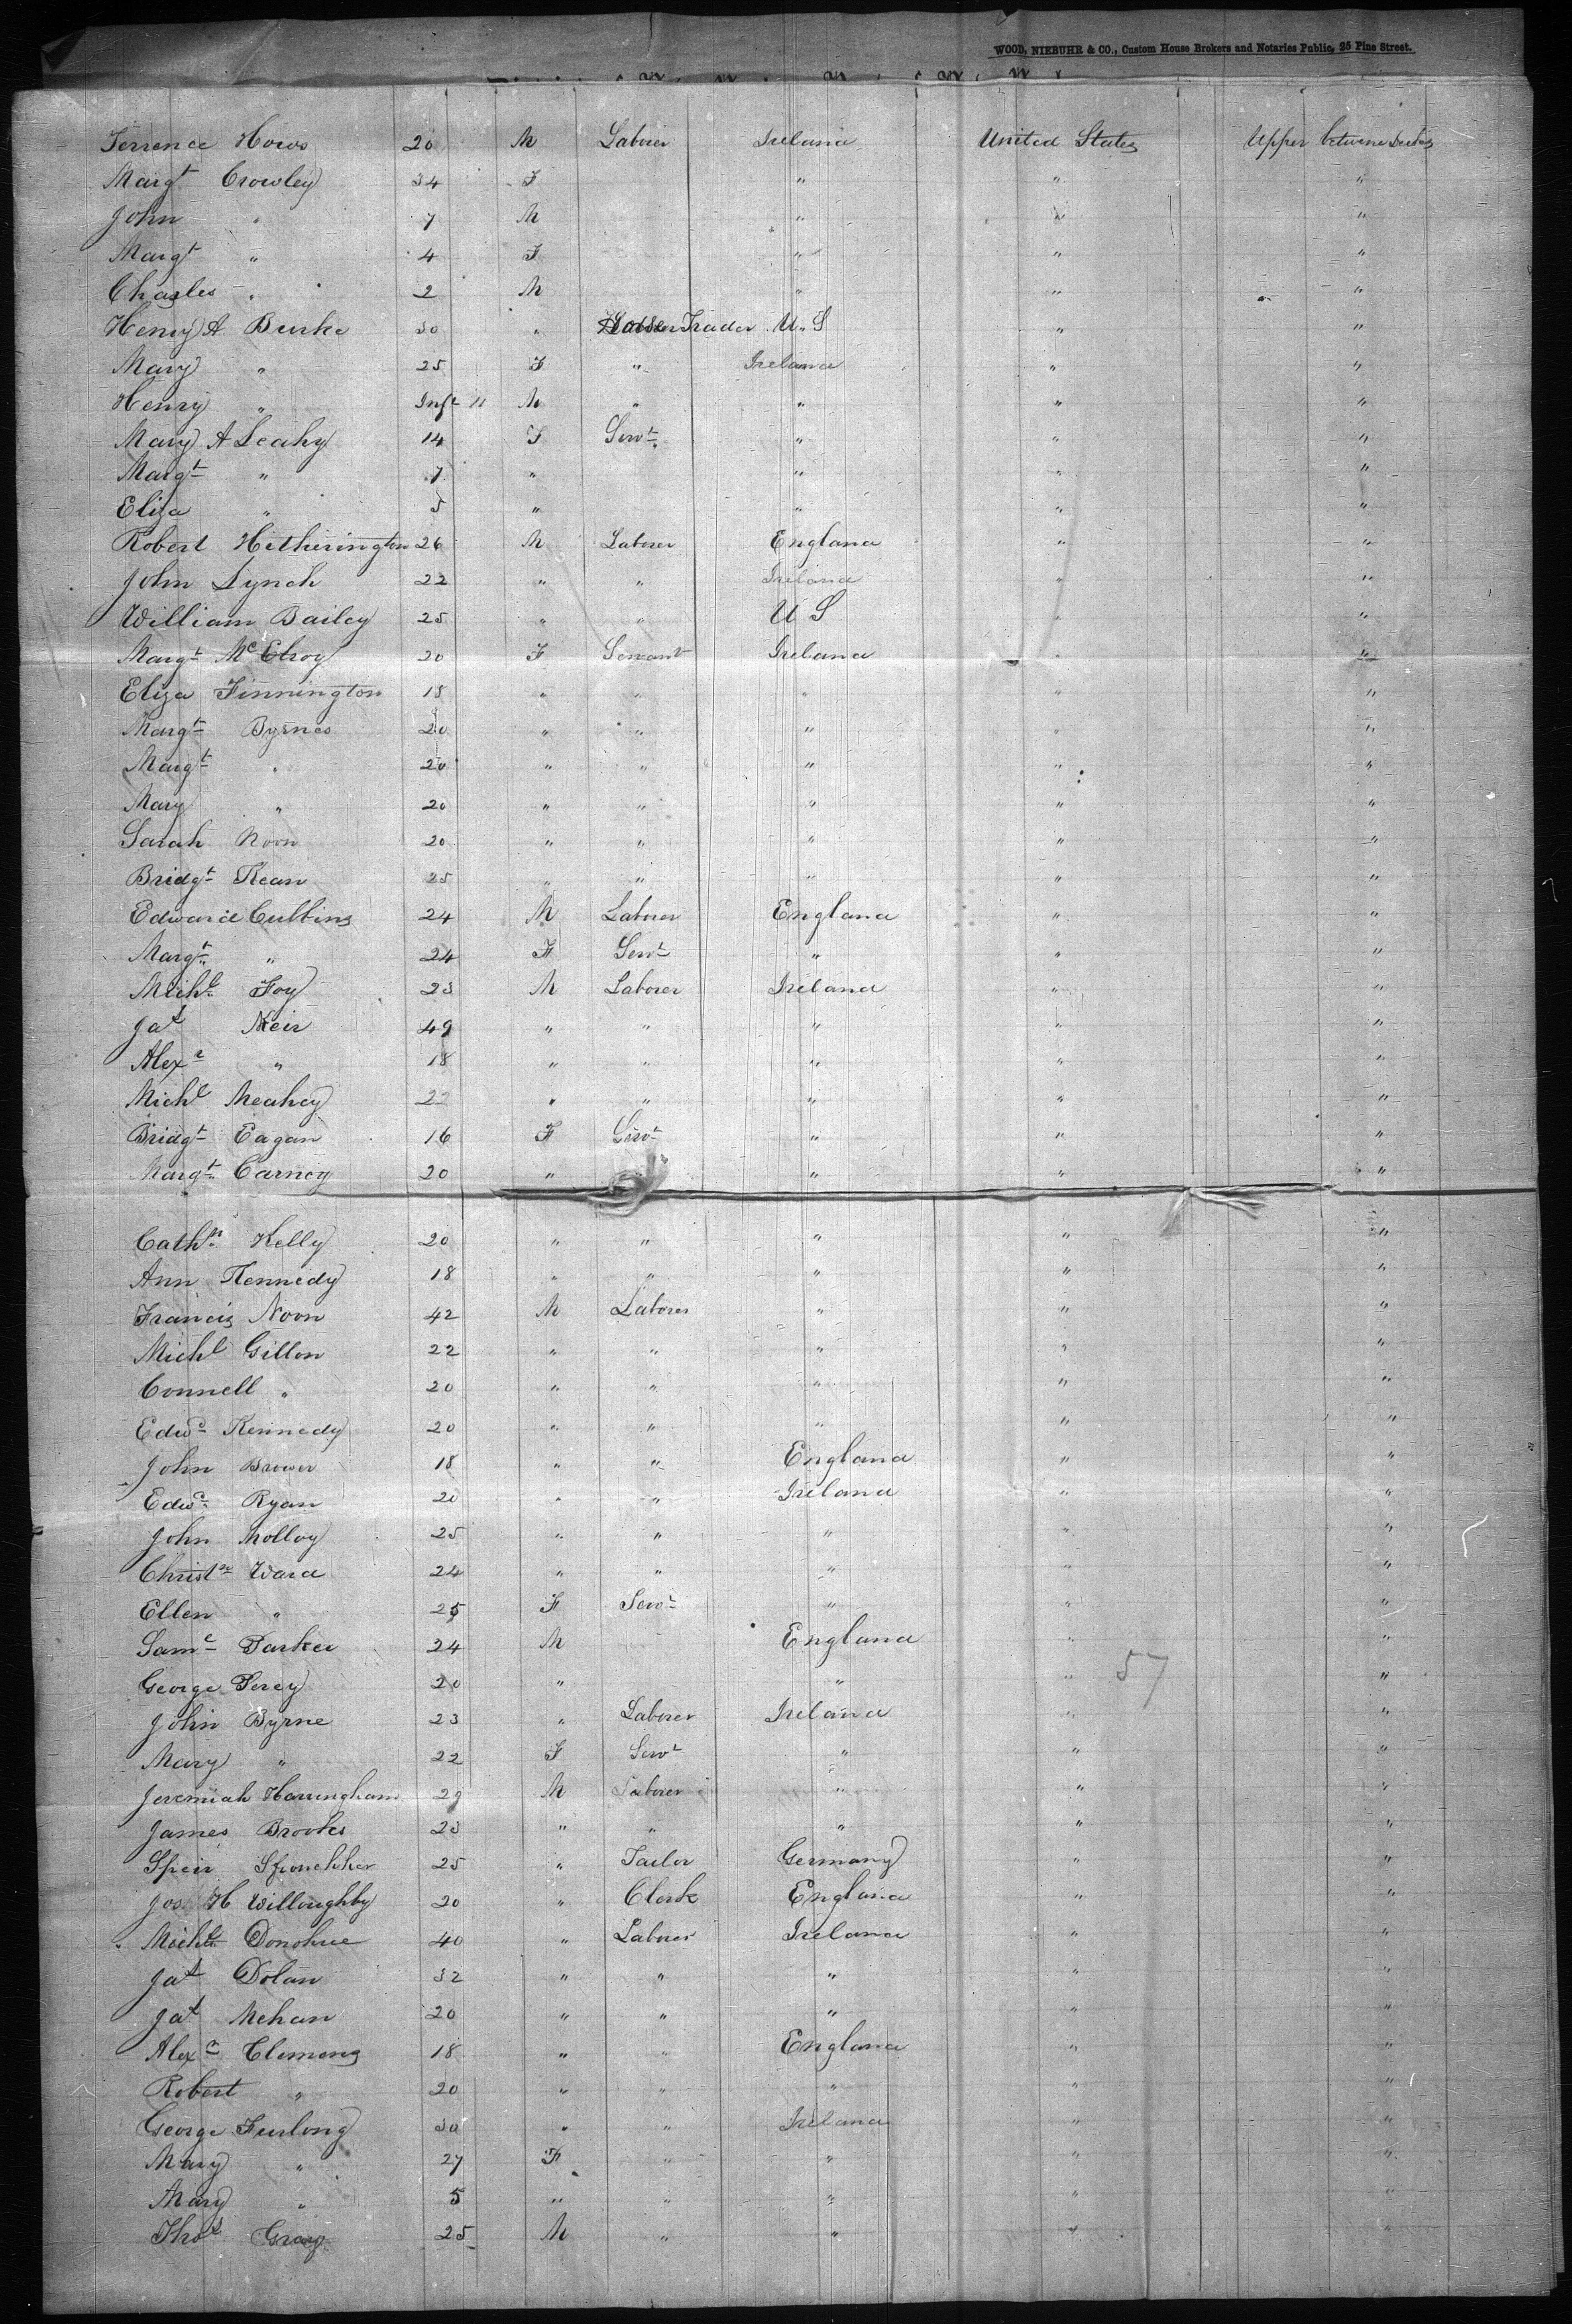 WOOD, NIEBUHR & CO., Custom House Brokers and Notaries Public, 25 Pine Street.
Terrence Hows 20 M Laborer Ireland United States Upper between Decks
Margt Crowley 34 F " " "
John " 7 M " " "
Margt " 4 F " " "
Charles " 2 M " " "
Henry A Burke 30 " Trader U.S " "
Mary " 25 F " Ireland " "
Henry " Inft 11 M " " " "
Mary A Leahy 14 F Servt " " "
Margt " 7 " " " "
Eliza " 5 " " " "
Robert Hetherington 26 M Laborer England " "
John Lynch 22 " " Ireland " "
William Bailey 25 " " U S " "
Margt McElroy 20 F Servant Ireland " "
Eliza Finnington 18 " " " " "
Margt Byrnes 20 " " " " "
Margt " 20 " " " " "
Mary " 20 " " " " "
Sarah Noon 20 " " " " "
Bridgt Kean 25 " " " " "
Edward Cubbins 24 M Laborer England " "
Margt " 24 F Servt " " "
Michl Foy 23 M Laborer Ireland " "
Jas Keir 49 " " " " "
Alexr " 18 " " " " "
Michl Meahey 22 " " " " "
Bridgt Eagan 16 F Servt " " "
Margt Carney 20 " " " " "
Cathn Kelly 20 " " " " "
Ann Kennedy 18 " " " " "
Francis Noon 42 M Laborer " " "
Michl Gillon 22 " " " " "
Connell " 20 " " " " "
Edwd Kennedy 20 " " " " "
John Brower 18 " " England " "
Edwd Ryan 20 " " Ireland " "
John Molloy 25 " " " " "
Christn Ward 24 " " " " "
Ellen " 25 F Servt " " "
Saml Parker 24 M England " "
George Percy 20 " " " 57 "
John Byrne 23 " Laborer Ireland " "
Mary " 22 F Servt " " "
Jeremiah Harringham 29 M Laborer " " "
James Brooks 23 " " " " "
Speir 25 " Tailor Germany " "
Jos H Willoughby 20 " Clerk England " "
Michl Donohue 40 " Laborer Ireland " "
Jas Dolan 32 " " " " "
Jas Mehan 20 " " " " "
Alexr Clemens 18 " " England " "
Robert " 20 " " " " "
George Furlong 30 " " Ireland " "
Mary " 27 F " " " "
Mary " 5 " " " " "
Thos Gray 25 M " " " "